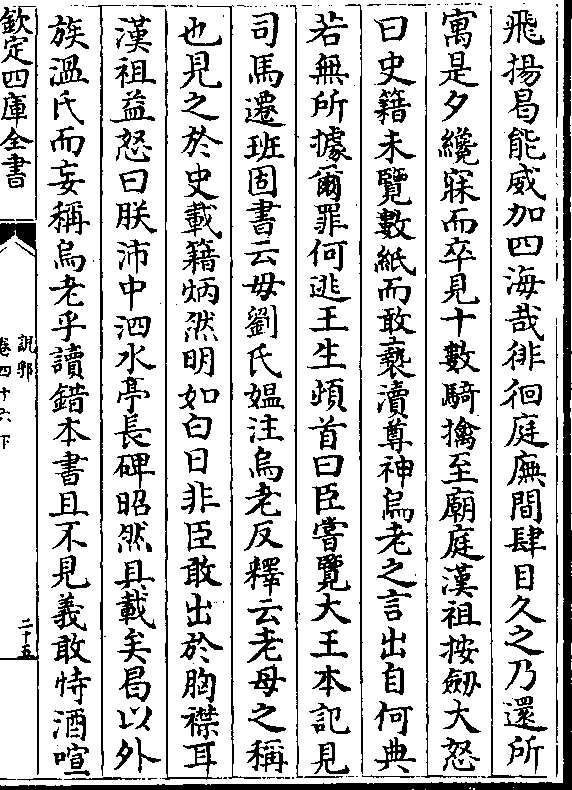 飛揚曷能威加四海哉徘徊庭廡間肆目久之乃還所
寓是夕纔寐而卒見十數騎擒至廟庭漢祖按劒大怒
曰史籍未覽數紙而敢䙝瀆尊神烏老之言出自何典
若無所據爾罪何逃王生頓首曰臣嘗覽大王本記見
司馬遷班固書云母劉氏媼注烏老反釋云老母之稱
也見之於史載籍炳然明如白日非臣敢出於胸襟耳
漢祖益怒曰朕沛中泗水亭長碑昭然具載矣曷以外
族溫氏而妄稱烏老乎讀錯本書且不見義敢恃酒喧
欽定四庫全書
說郛
卷四十六下
二十五